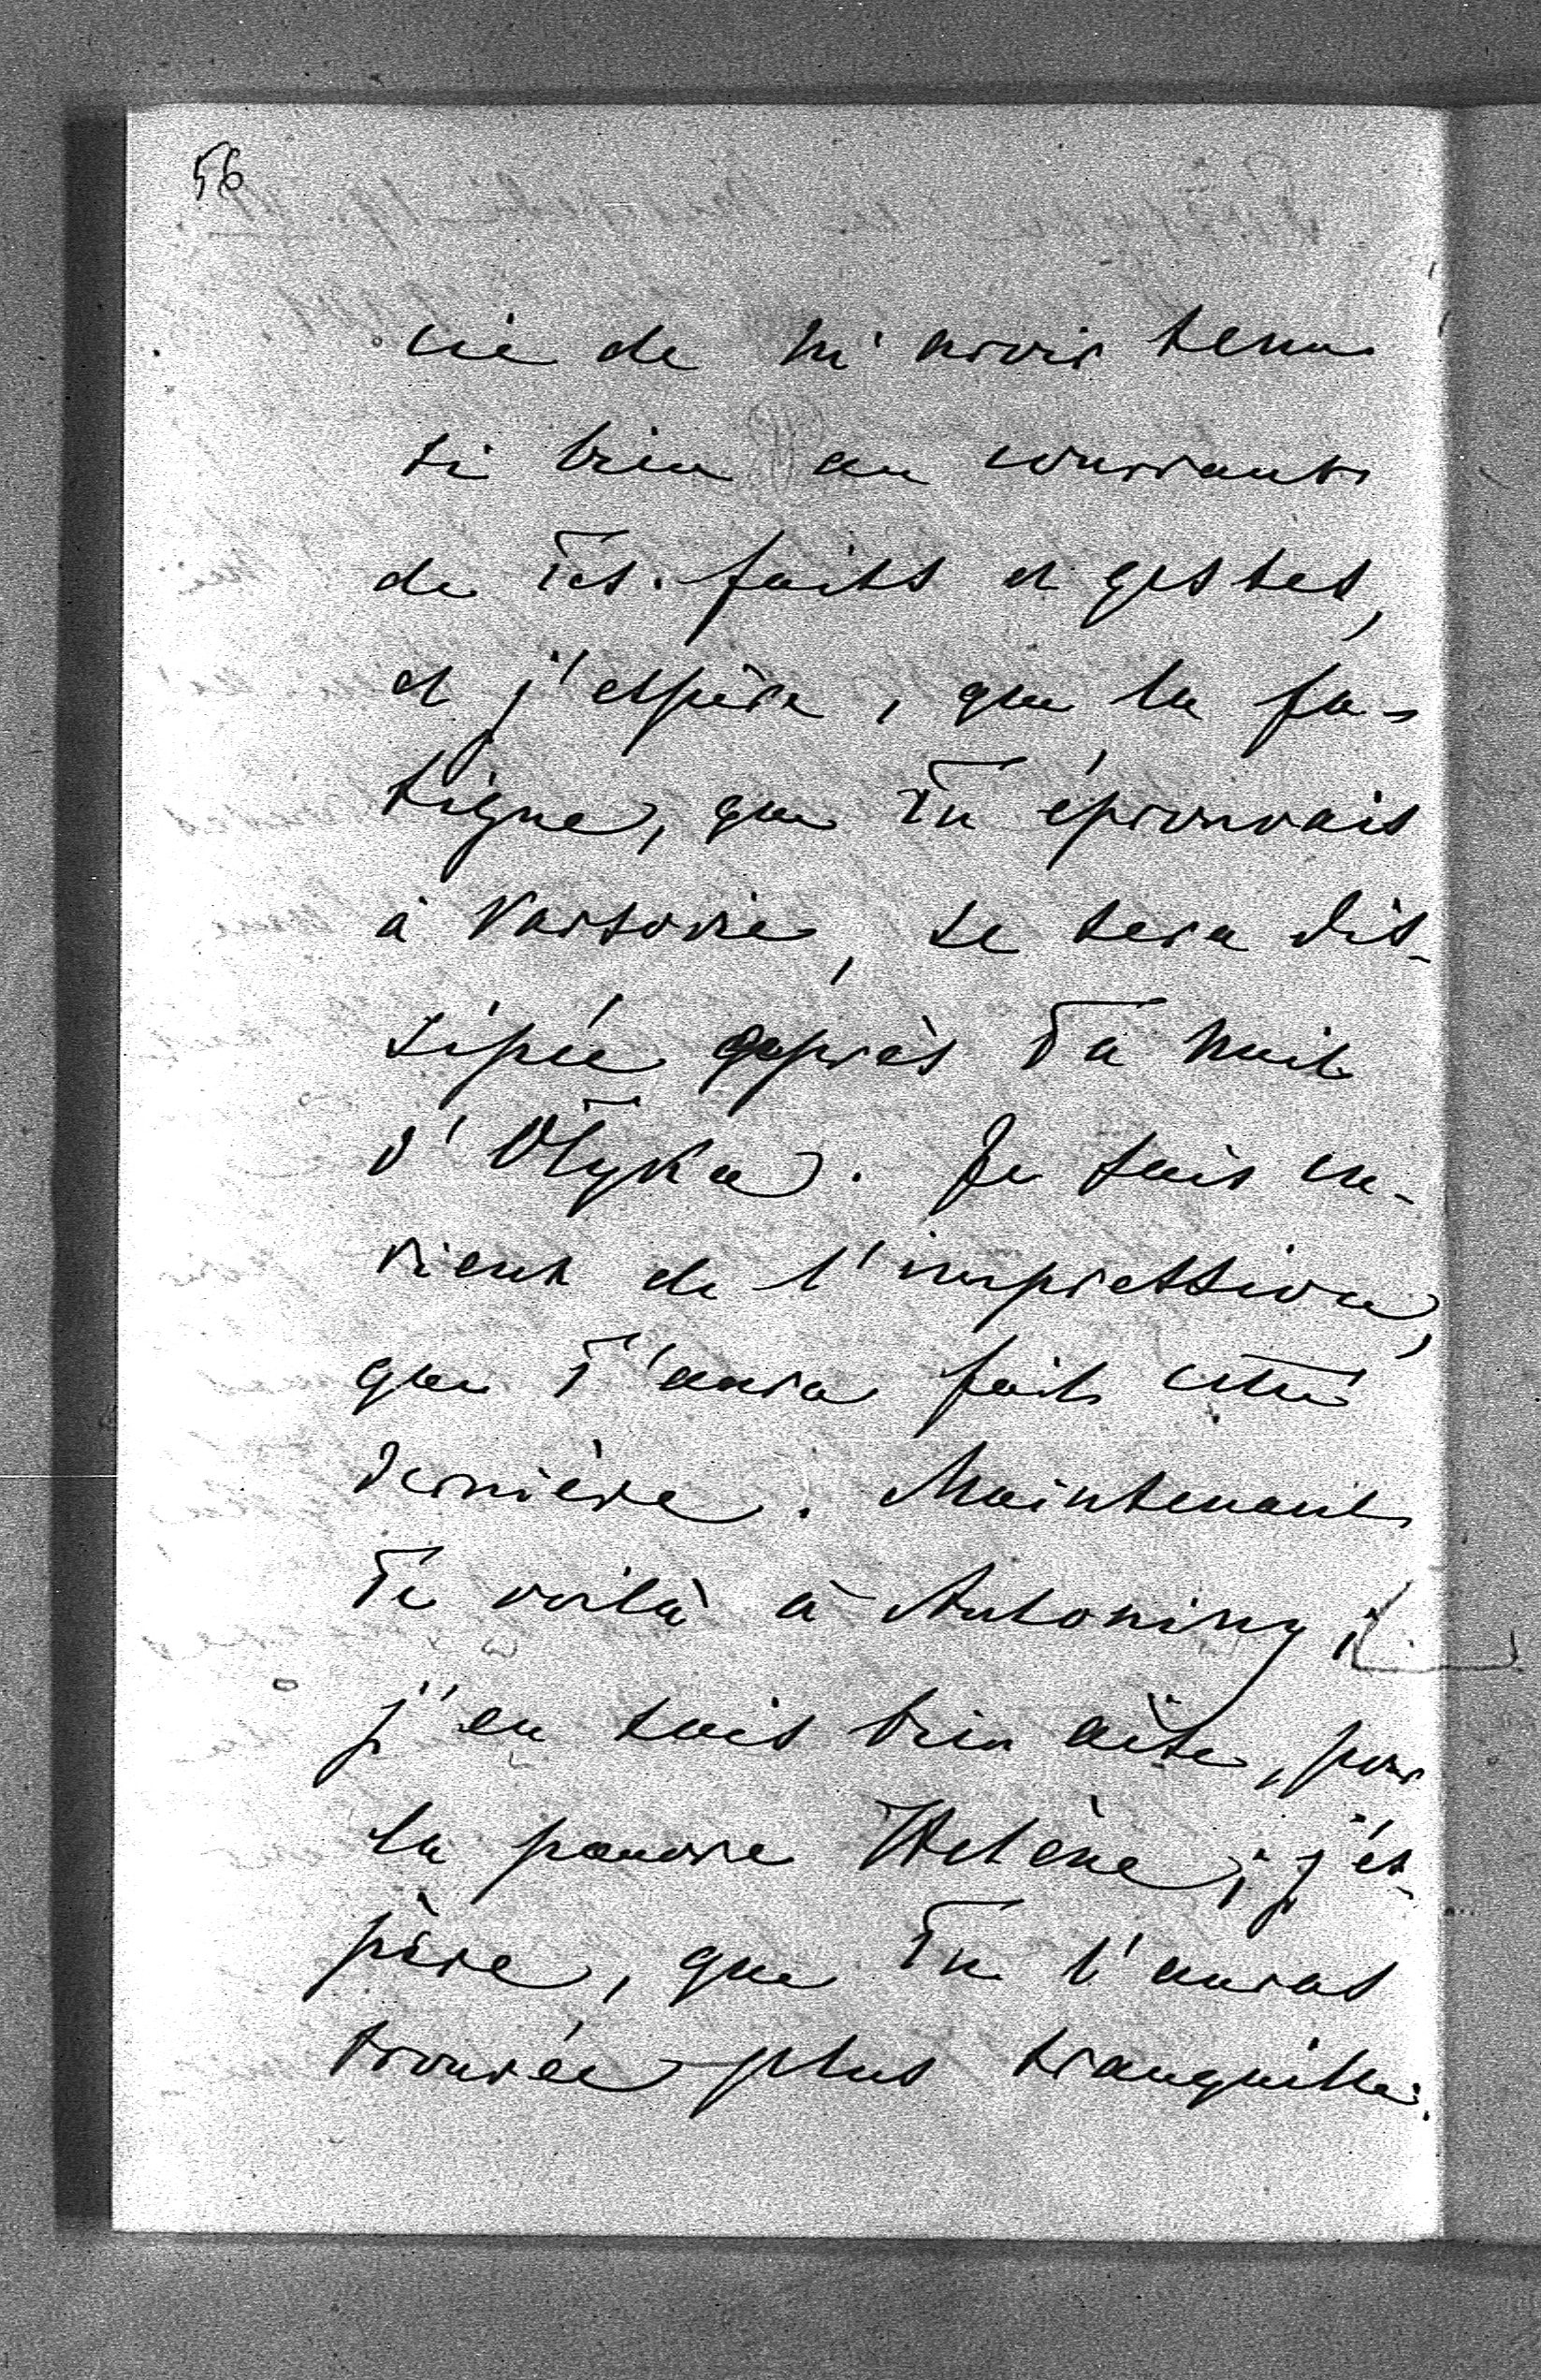 56
cie de m'avoir tenu
si bien au courant
de Tes faits et gestes,
et j'espère, que la fa-
tigue, que Tu éprouvais
à Varsovie, se sera dis-
sipée après Ta nuit
d'Olyka. Je suis cu-
rieux de l'impression,
que T'aura fait cette
dernière. Maintenant
Te voilà à Antoniny;
j'en suis bien aise, pour
la pauvre Hélène; j'es-
père, que Tu l'auras
trouvée plus tranquille.